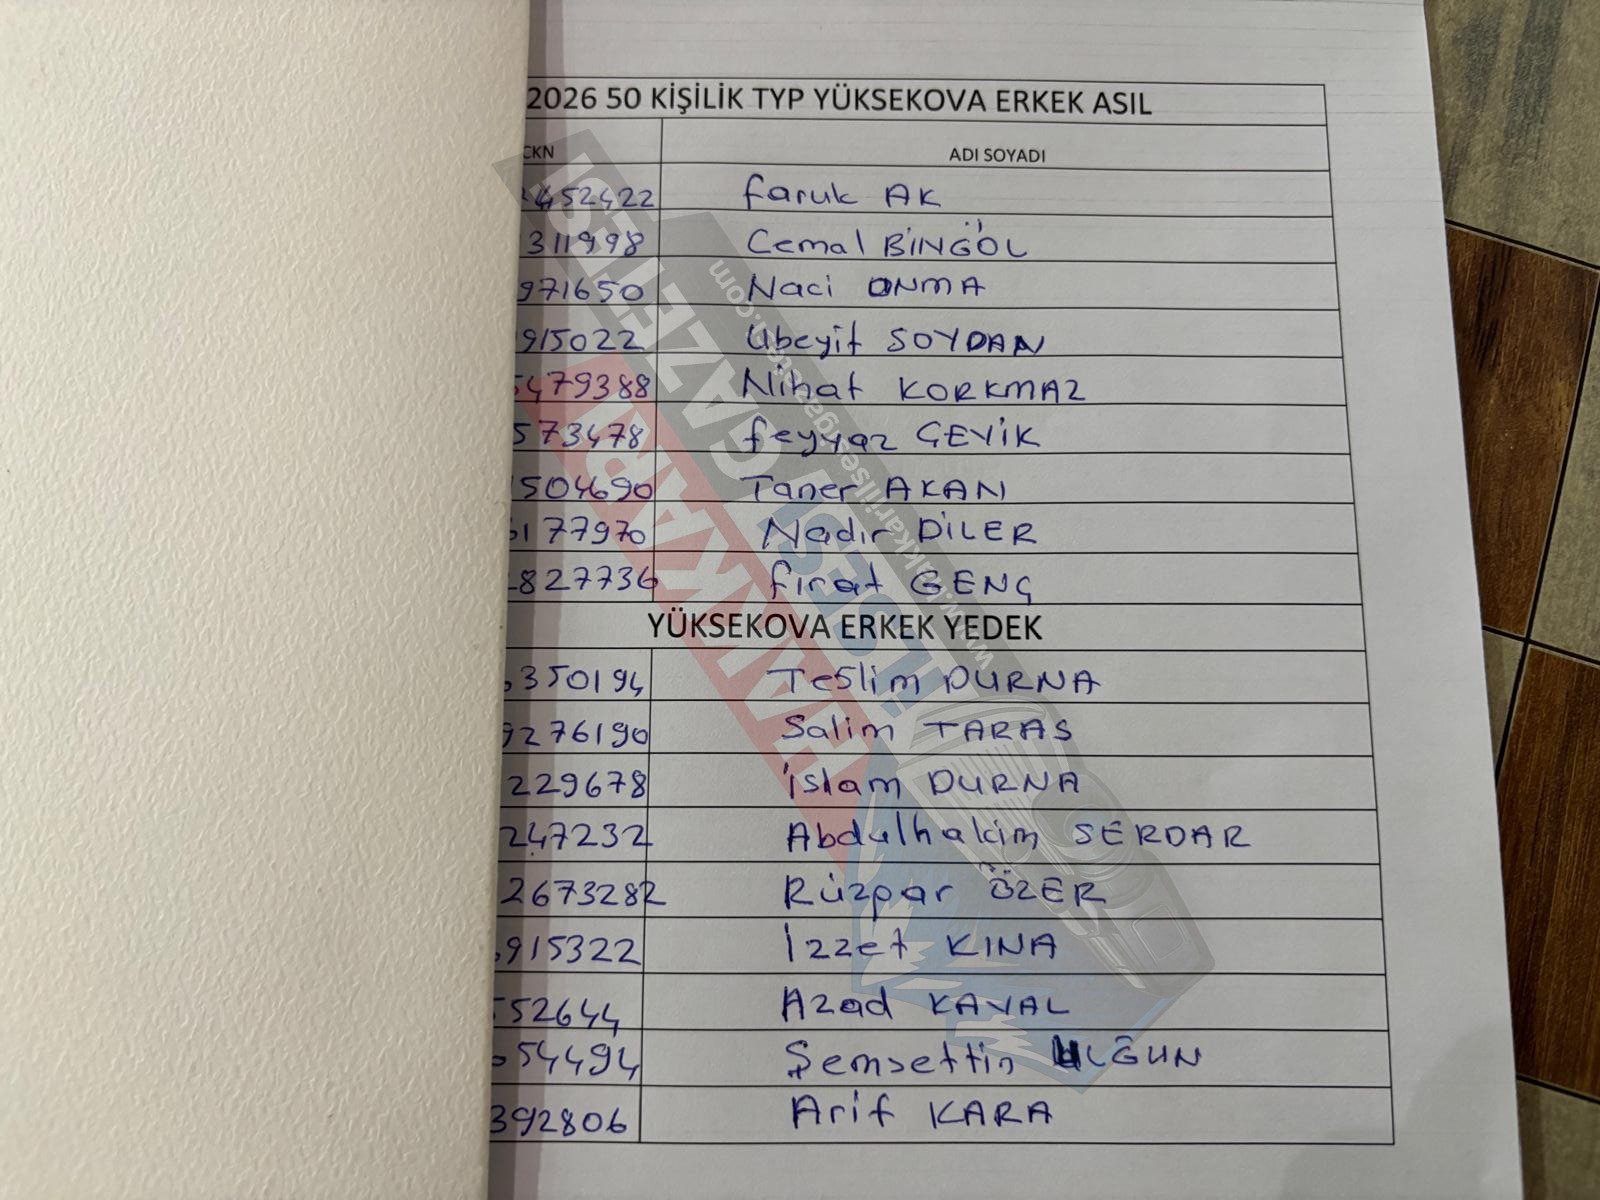 2026 50 KİŞİLİK TYP YÜKSEKOVA ERKEK ASIL
CKN ADI SOYADI
452422 Faruk AK
311998 Cemal BİNGÖL
971650 Naci ONMA
915022 Ubeyit SOYDAN
479388 Nihat KORKMAZ
573478 Feyyaz GEVİK
504690 Taner AKAN
177970 Nadir DİLER
827736 Fırat GENÇ
YÜKSEKOVA ERKEK YEDEK
350194 Teslim DURNA
9276190 Salim TARAS
229678 İslam DURNA
247232 Abdulhakim SERDAR
2673282 Rüzpar ÖZER
915322 İzzet KINA
52644 Azad KAVAL
54494 Şemsettin ULĞUN
392806 Arif KARA
HAKKARİ
İLSESİ GAZETESİ
www.hakkariilsesigazetesi.com